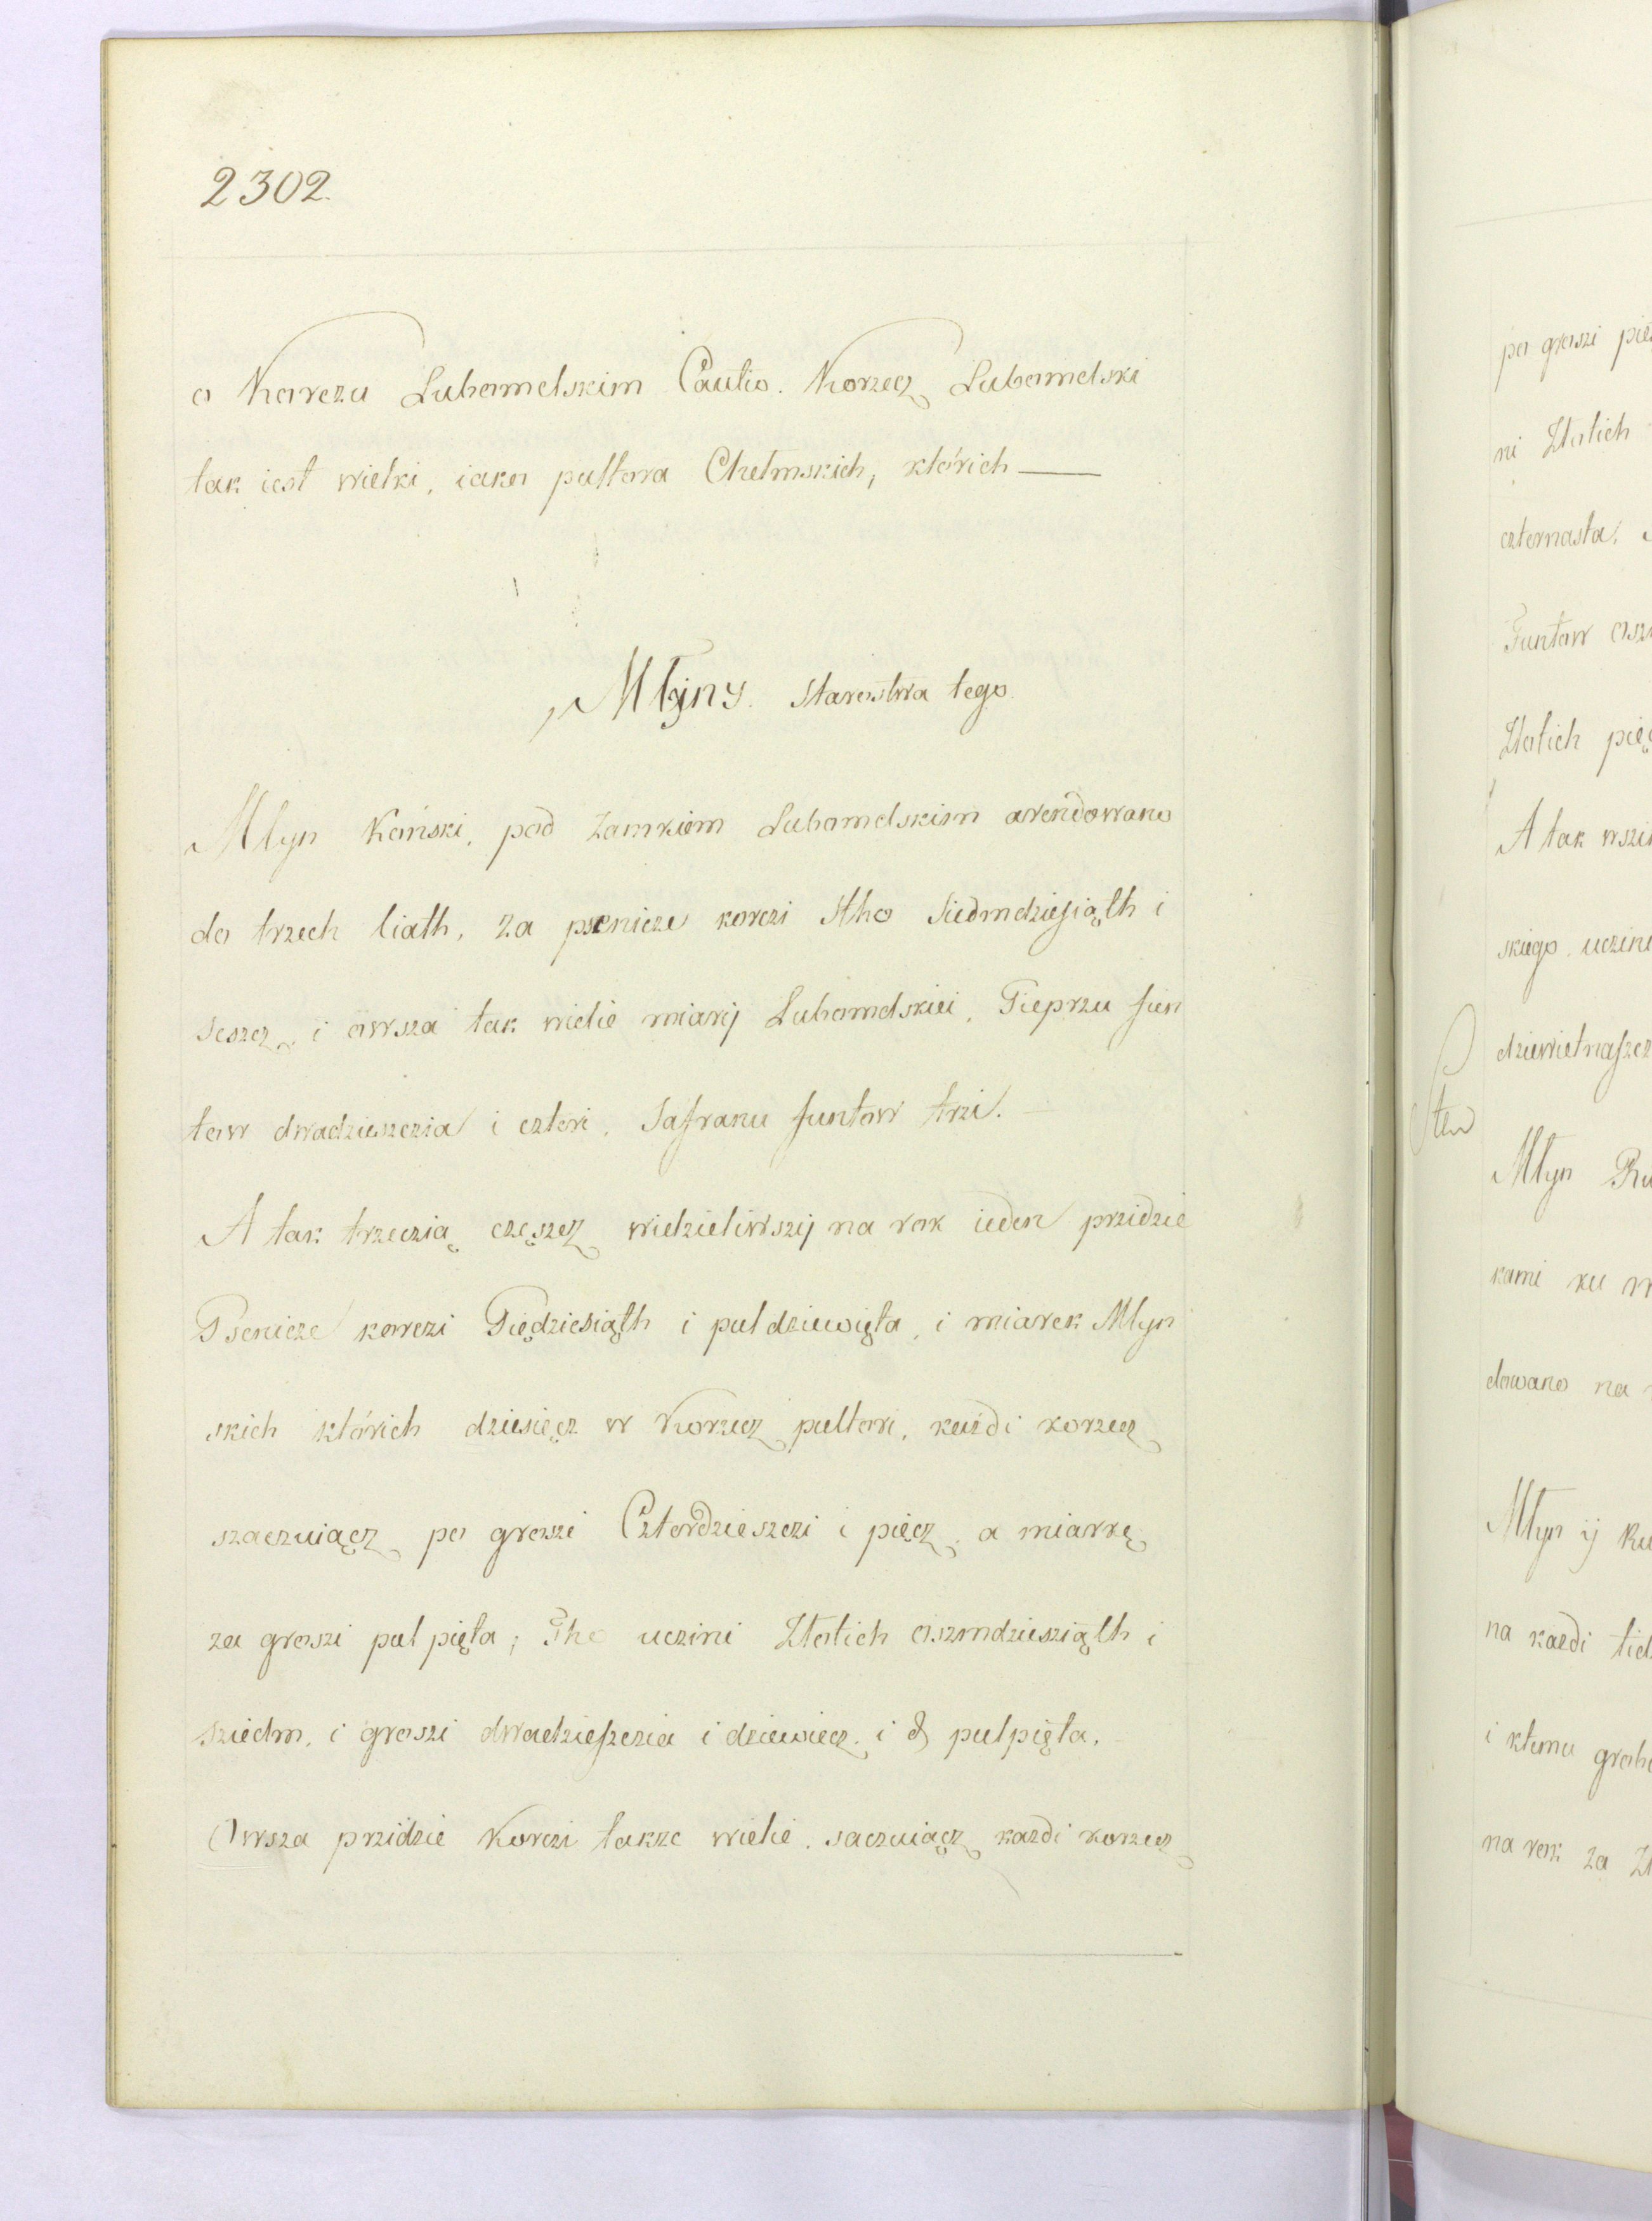 2302.
o Korczu Lubomelskim Cautio. Korzecz Lubomelski
tak iest wielki, iako pultora Chelmskich, których —
Młyny. Starostwa tego.
Młyn Koński, pod Zamkiem Lubomelskim arendowano
do trzech liath, za psenicze korczi Stho Siedmdziesiąth i
seszcz, i owsza tak wielie miarij Lubomelskiei, Pieprzu fun
tow dwadzieszczia i cztori, Safranu funtow trzi. —
A tak trzeczią częszcz widzieliwszij na rok ieden przidzie
Psenicze korczi Piędziesiąth i puldziewięta, i miarek Mlyn
skich których dziesięcz w Korzecz pultori, każdi korzecz
szaczuiącz po groszi Czterdzieszczi i pięcz, a miarkę
za groszi pul pięta; Tho uczini Złotich oszmdziesziąth i
sziedm, i groszi dwadzieszczia i dziewiecz. i pulpięta.
Owsza przidzie Korczi takze wielie, saczuiącz kazdi korzecz
po groszi
ni Złotich
czternasta.
Funtow
Złotich
A tak
skiego
Młyn
kami ku
dowano na
Młyn ij
na kaedi
i ktemu
na rok za